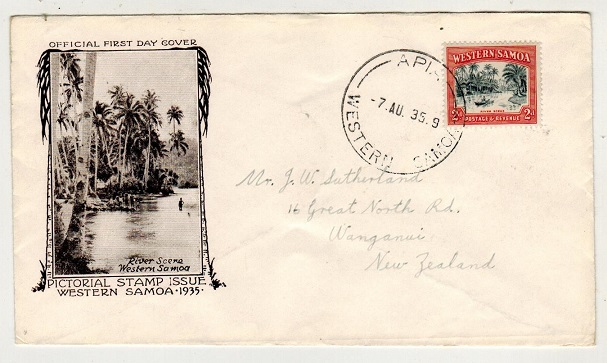 OFFICIAL FIRST DAY COVER
River Scene
Western Samoa
PICTORIAL STAMP ISSUE
WESTERN SAMOA · 1935 ·
APIA
-7.AU.35.9
WESTERN SAMOA
WESTERN SAMOA
RIVER SCENE
2d 2d
POSTAGE & REVENUE
Mr. J. W. Sutherland
16 Great North Rd.
Wanganui
New Zealand